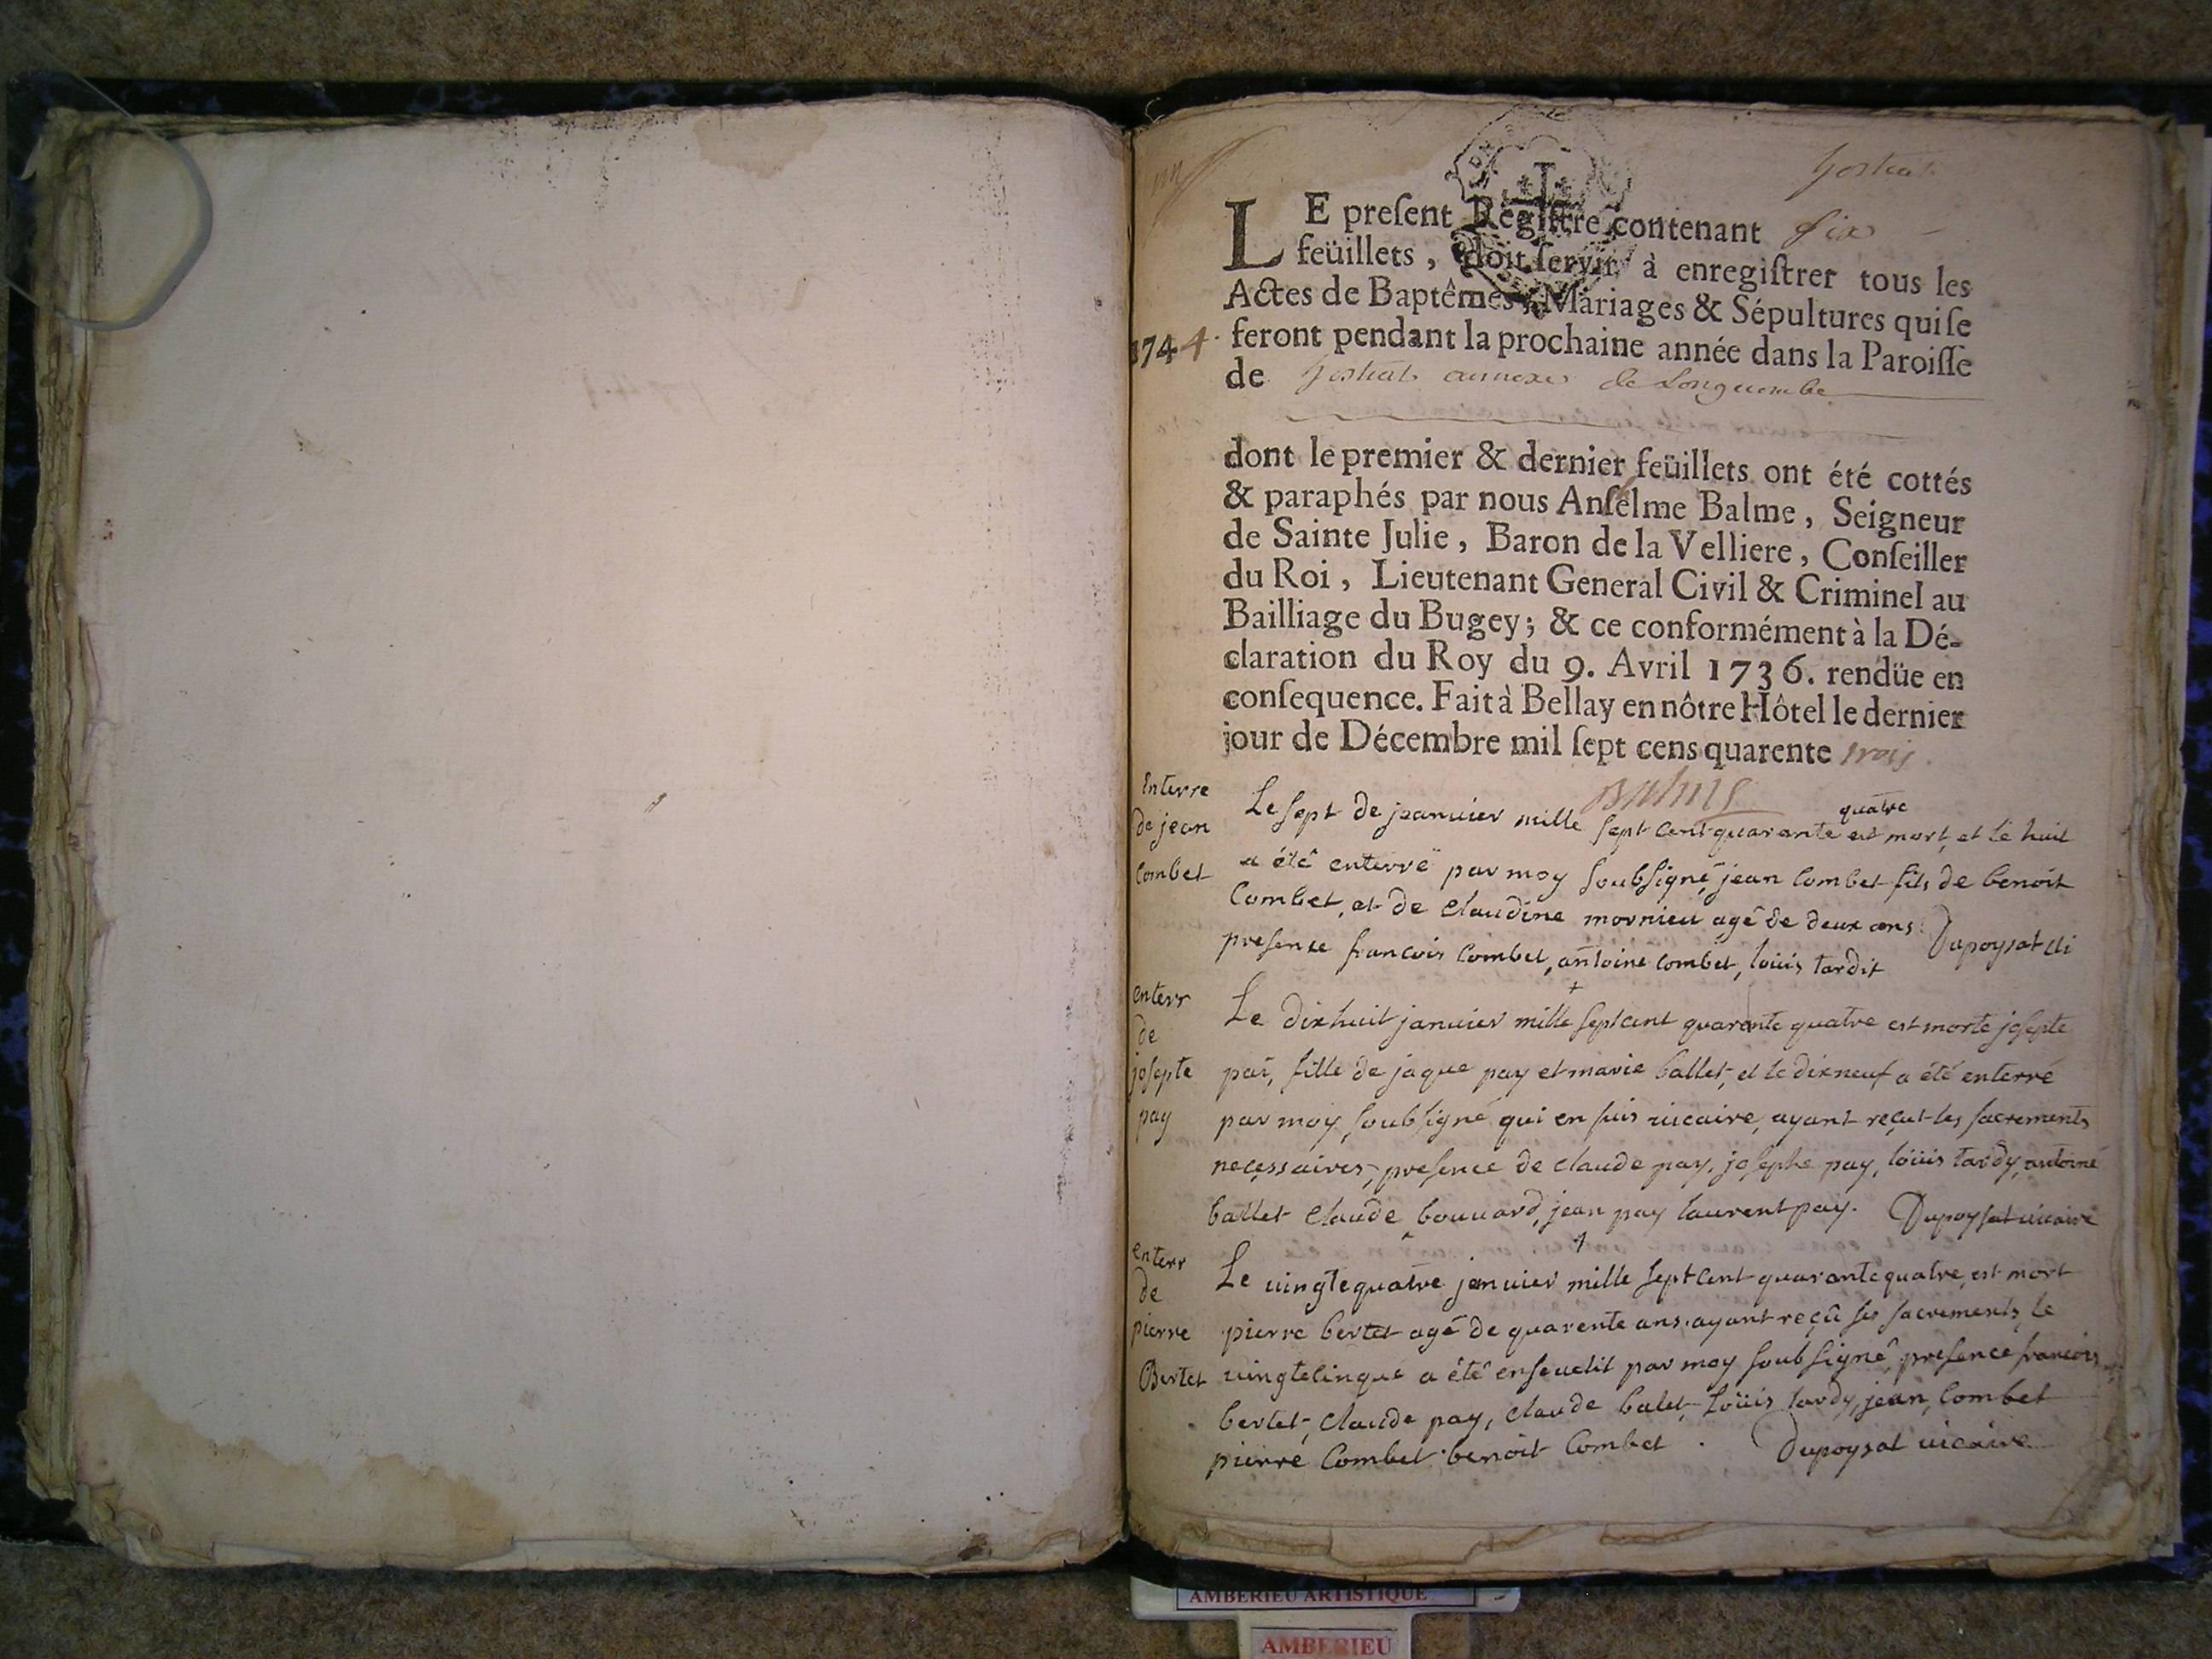 hostias
LE preſent Regiſtre contenant six
feüillets, doit ſervir à enregiſtrer tous les
Actes de Baptêmes, Mariages & Sépultures qui ſe
1744. feront pendant la prochaine année dans la Paroiſſe
de hostias annexe de Longecombe
dont le premier & dernier feüillets ont été cottés
& paraphés par nous Anſelme Balme, Seigneur
de Sainte Julie, Baron de la Velliere, Conſeiller
du Roi, Lieutenant General Civil & Criminel au
Bailliage du Bugey; & ce conformément à la Dé-
claration du Roy du 9. Avril 1736. rendüe en
conſequence. Fait à Bellay en nôtre Hôtel le dernier
jour de Décembre mil ſept cens quarente trois
Balme
Enterre
de jean
Combet
Le sept de jeanuier mille sept cent quarante quatre est mort, et le huit
a été enterré par moy soubsigné jean Combet fils de benoit
Combet, et de Claudine mornieu agé de deux ans
presence francois Combet, antoine combet, loüis tardit Dupoysat
enterr
de
josepte
pay
Le dixhuit januier mille septcent quarante quatre est morte josepte
pai, fille de jaque pay et marie ballet, et le dixneuf a été enterré
par moy soubsigné qui en suis uicaire, ayant reçut les sacrements
necessaires, presence de claude pay, josephe pay, loüis tardy, antoine
ballet Claude bouuard, jean pay laurent pay. Dupoysat uicaire
enterr
de
pierre
Bertet
Le uingtequatre januier mille septcent quarantequatre, est mort
pierre bertet agé de quarente ans, ayant reçû ses sacrements, le
uingtecinque a été enseuelit par moy soubsigné, presence francois
bertet, claude pay, claude balet, Loüis tardy, jean Combet
pierre Combet benoit Combet. Dupoysat uicaire
AMBERIEU ARTISTIQUE
AMBERIEU